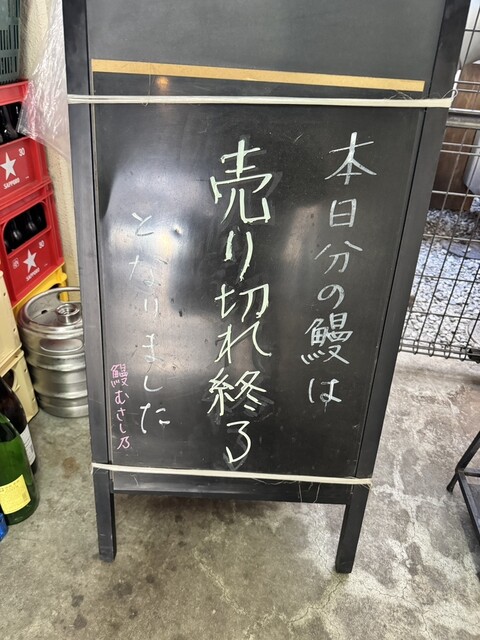 本日分の鰻は
売り切れ終る
となりました
鰻むさし乃
SAPPORO
30
SAPPORO
30